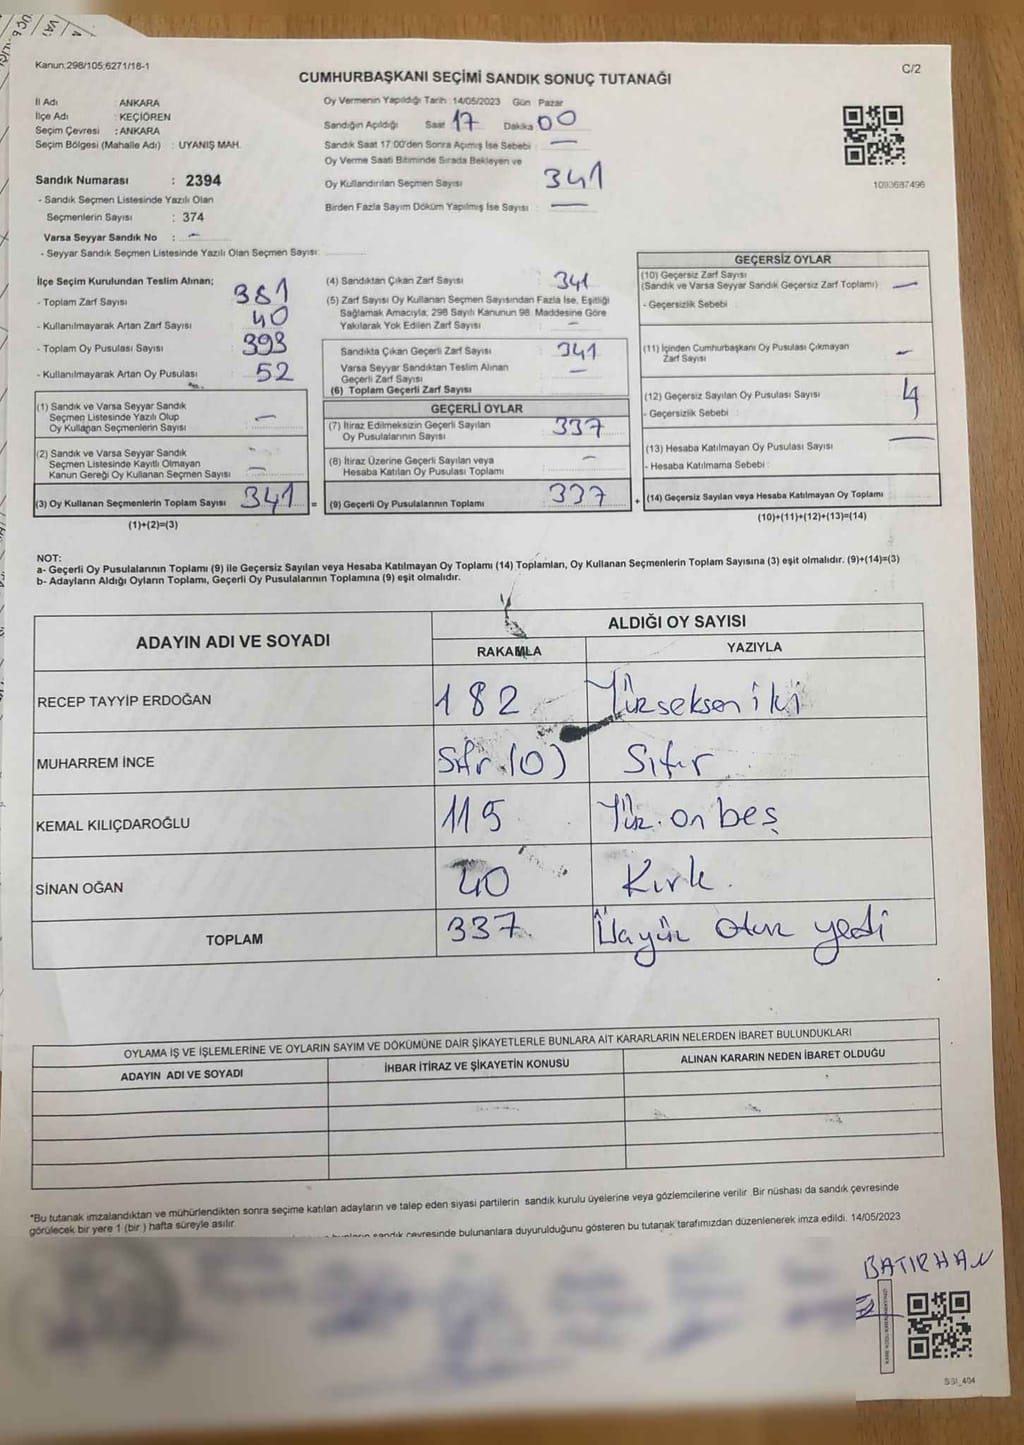 Kanun:298/105;6271/18-1
C/2
CUMHURBAŞKANI SEÇİMİ SANDIK SONUÇ TUTANAĞI
İl Adı : ANKARA
İlçe Adı : KEÇİÖREN
Seçim Çevresi : ANKARA
Seçim Bölgesi (Mahalle Adı) : UYANIŞ MAH.
Sandık Numarası : 2394
- Sandık Seçmen Listesinde Yazılı Olan
Seçmenlerin Sayısı : 374
Varsa Seyyar Sandık No : —
- Seyyar Sandık Seçmen Listesinde Yazılı Olan Seçmen Sayısı:
Oy Vermenin Yapıldığı Tarih :14/05/2023 Gün Pazar
Sandığın Açıldığı Saat 17 Dakika 00
Sandık Saat 17:00'den Sonra Açımış İse Sebebi : —
Oy Verme Saati Bitiminde Sırada Bekleyen ve
Oy Kullandırılan Seçmen Sayısı : 341
Birden Fazla Sayım Döküm Yapılmış İse Sayısı : —
1093687496
İlçe Seçim Kurulundan Teslim Alınan;
- Toplam Zarf Sayısı : 381
- Kullanılmayarak Artan Zarf Sayısı : 40
- Toplam Oy Pusulası Sayısı : 393
- Kullanılmayarak Artan Oy Pusulası : 52
(1) Sandık ve Varsa Seyyar Sandık
Seçmen Listesinde Yazılı Olup
Oy Kullanan Seçmenlerin Sayısı : —
(2) Sandık ve Varsa Seyyar Sandık
Seçmen Listesinde Kayıtlı Olmayan
Kanun Gereği Oy Kullanan Seçmen Sayısı : —
(3) Oy Kullanan Seçmenlerin Toplam Sayısı : 341 =
(1)+(2)=(3)
(4) Sandıktan Çıkan Zarf Sayısı : 341
(5) Zarf Sayısı Oy Kullanan Seçmen Sayısından Fazla İse, Eşitliği
Sağlamak Amacıyla, 298 Sayılı Kanunun 98. Maddesine Göre
Yakılarak Yok Edilen Zarf Sayısı : —
Sandıkta Çıkan Geçerli Zarf Sayısı : 341
Varsa Seyyar Sandıktan Teslim Alınan
Geçerli Zarf Sayısı : —
(6) Toplam Geçerli Zarf Sayısı
GEÇERLİ OYLAR
(7) İtiraz Edilmeksizin Geçerli Sayılan
Oy Pusulalarının Sayısı : 337
(8) İtiraz Üzerine Geçerli Sayılan veya
Hesaba Katılan Oy Pusulası Toplamı : —
(9) Geçerli Oy Pusulalarının Toplamı : 337 +
GEÇERSİZ OYLAR
(10) Geçersiz Zarf Sayısı
(Sandık ve Varsa Seyyar Sandık Geçersiz Zarf Toplamı) : —
- Geçersizlik Sebebi :
(11) İçinden Cumhurbaşkanı Oy Pusulası Çıkmayan
Zarf Sayısı : —
(12) Geçersiz Sayılan Oy Pusulası Sayısı : 4
- Geçersizlik Sebebi :
(13) Hesaba Katılmayan Oy Pusulası Sayısı : —
- Hesaba Katılmama Sebebi :
(14) Geçersiz Sayılan veya Hesaba Katılmayan Oy Toplamı
(10)+(11)+(12)+(13)=(14)
NOT:
a- Geçerli Oy Pusulalarının Toplamı (9) ile Geçersiz Sayılan veya Hesaba Katılmayan Oy Toplamı (14) Toplamları, Oy Kullanan Seçmenlerin Toplam Sayısına (3) eşit olmalıdır. (9)+(14)=(3)
b- Adayların Aldığı Oyların Toplamı, Geçerli Oy Pusulalarının Toplamına (9) eşit olmalıdır.
ADAYIN ADI VE SOYADI
ALDIĞI OY SAYISI
RAKAMLA YAZIYLA
RECEP TAYYİP ERDOĞAN 182 Yüzseksen iki
MUHARREM İNCE Sıfır (0) Sıfır
KEMAL KILIÇDAROĞLU 115 Yüz on beş
SİNAN OĞAN 40 Kırk.
TOPLAM 337 Üçyüz otuz yedi
OYLAMA İŞ VE İŞLEMLERİNE VE OYLARIN SAYIM VE DÖKÜMÜNE DAİR ŞİKAYETLERLE BUNLARA AİT KARARLARIN NELERDEN İBARET BULUNDUKLARI
ADAYIN ADI VE SOYADI İHBAR İTİRAZ VE ŞİKAYETİN KONUSU ALINAN KARARIN NEDEN İBARET OLDUĞU
*Bu tutanak imzalandıktan ve mühürlendikten sonra seçime katılan adayların ve talep eden siyasi partilerin sandık kurulu üyelerine veya gözlemcilerine verilir. Bir nüshası da sandık çevresinde
görülecek bir yere 1 (bir ) hafta süreyle asılır.
sandık çevresinde bulunanlara duyurulduğunu gösteren bu tutanak tarafımızdan düzenlenerek imza edildi. 14/05/2023
BATIRHAN
SSI_404